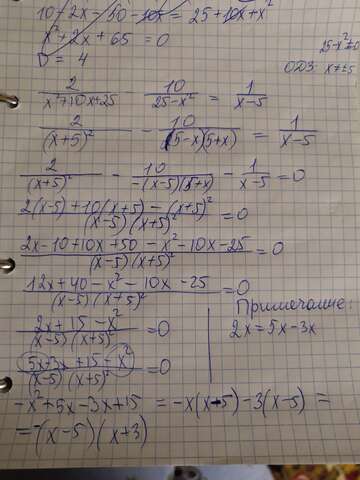 10 - 2x - 50 - 10x = 25 + 10x + x²
x² + 2x + 65 = 0
D = 4
25 - x² ≠ 0
ОДЗ: x ≠ ±5
2/(x² + 10x + 25) - 10/(25 - x²) = 1/(x - 5)
2/(x + 5)² - 10/((5 - x)(5 + x)) = 1/(x - 5)
2/(x + 5)² - 10/(-(x - 5)(5 + x)) - 1/(x - 5) = 0
(2(x - 5) + 10(x + 5) - (x + 5)²)/((x - 5)(x + 5)²) = 0
(2x - 10 + 10x + 50 - x² - 10x - 25)/((x - 5)(x + 5)²) = 0
(12x + 40 - x² - 10x - 25)/((x - 5)(x + 5)²) = 0
(2x + 15 - x²)/((x - 5)(x + 5)²) = 0
Примечание:
2x = 5x - 3x
(5x - 3x + 15 - x²)/((x - 5)(x + 5)²) = 0
-x² + 5x - 3x + 15 = -x(x - 5) - 3(x - 5) =
= -(x - 5)(x + 3)